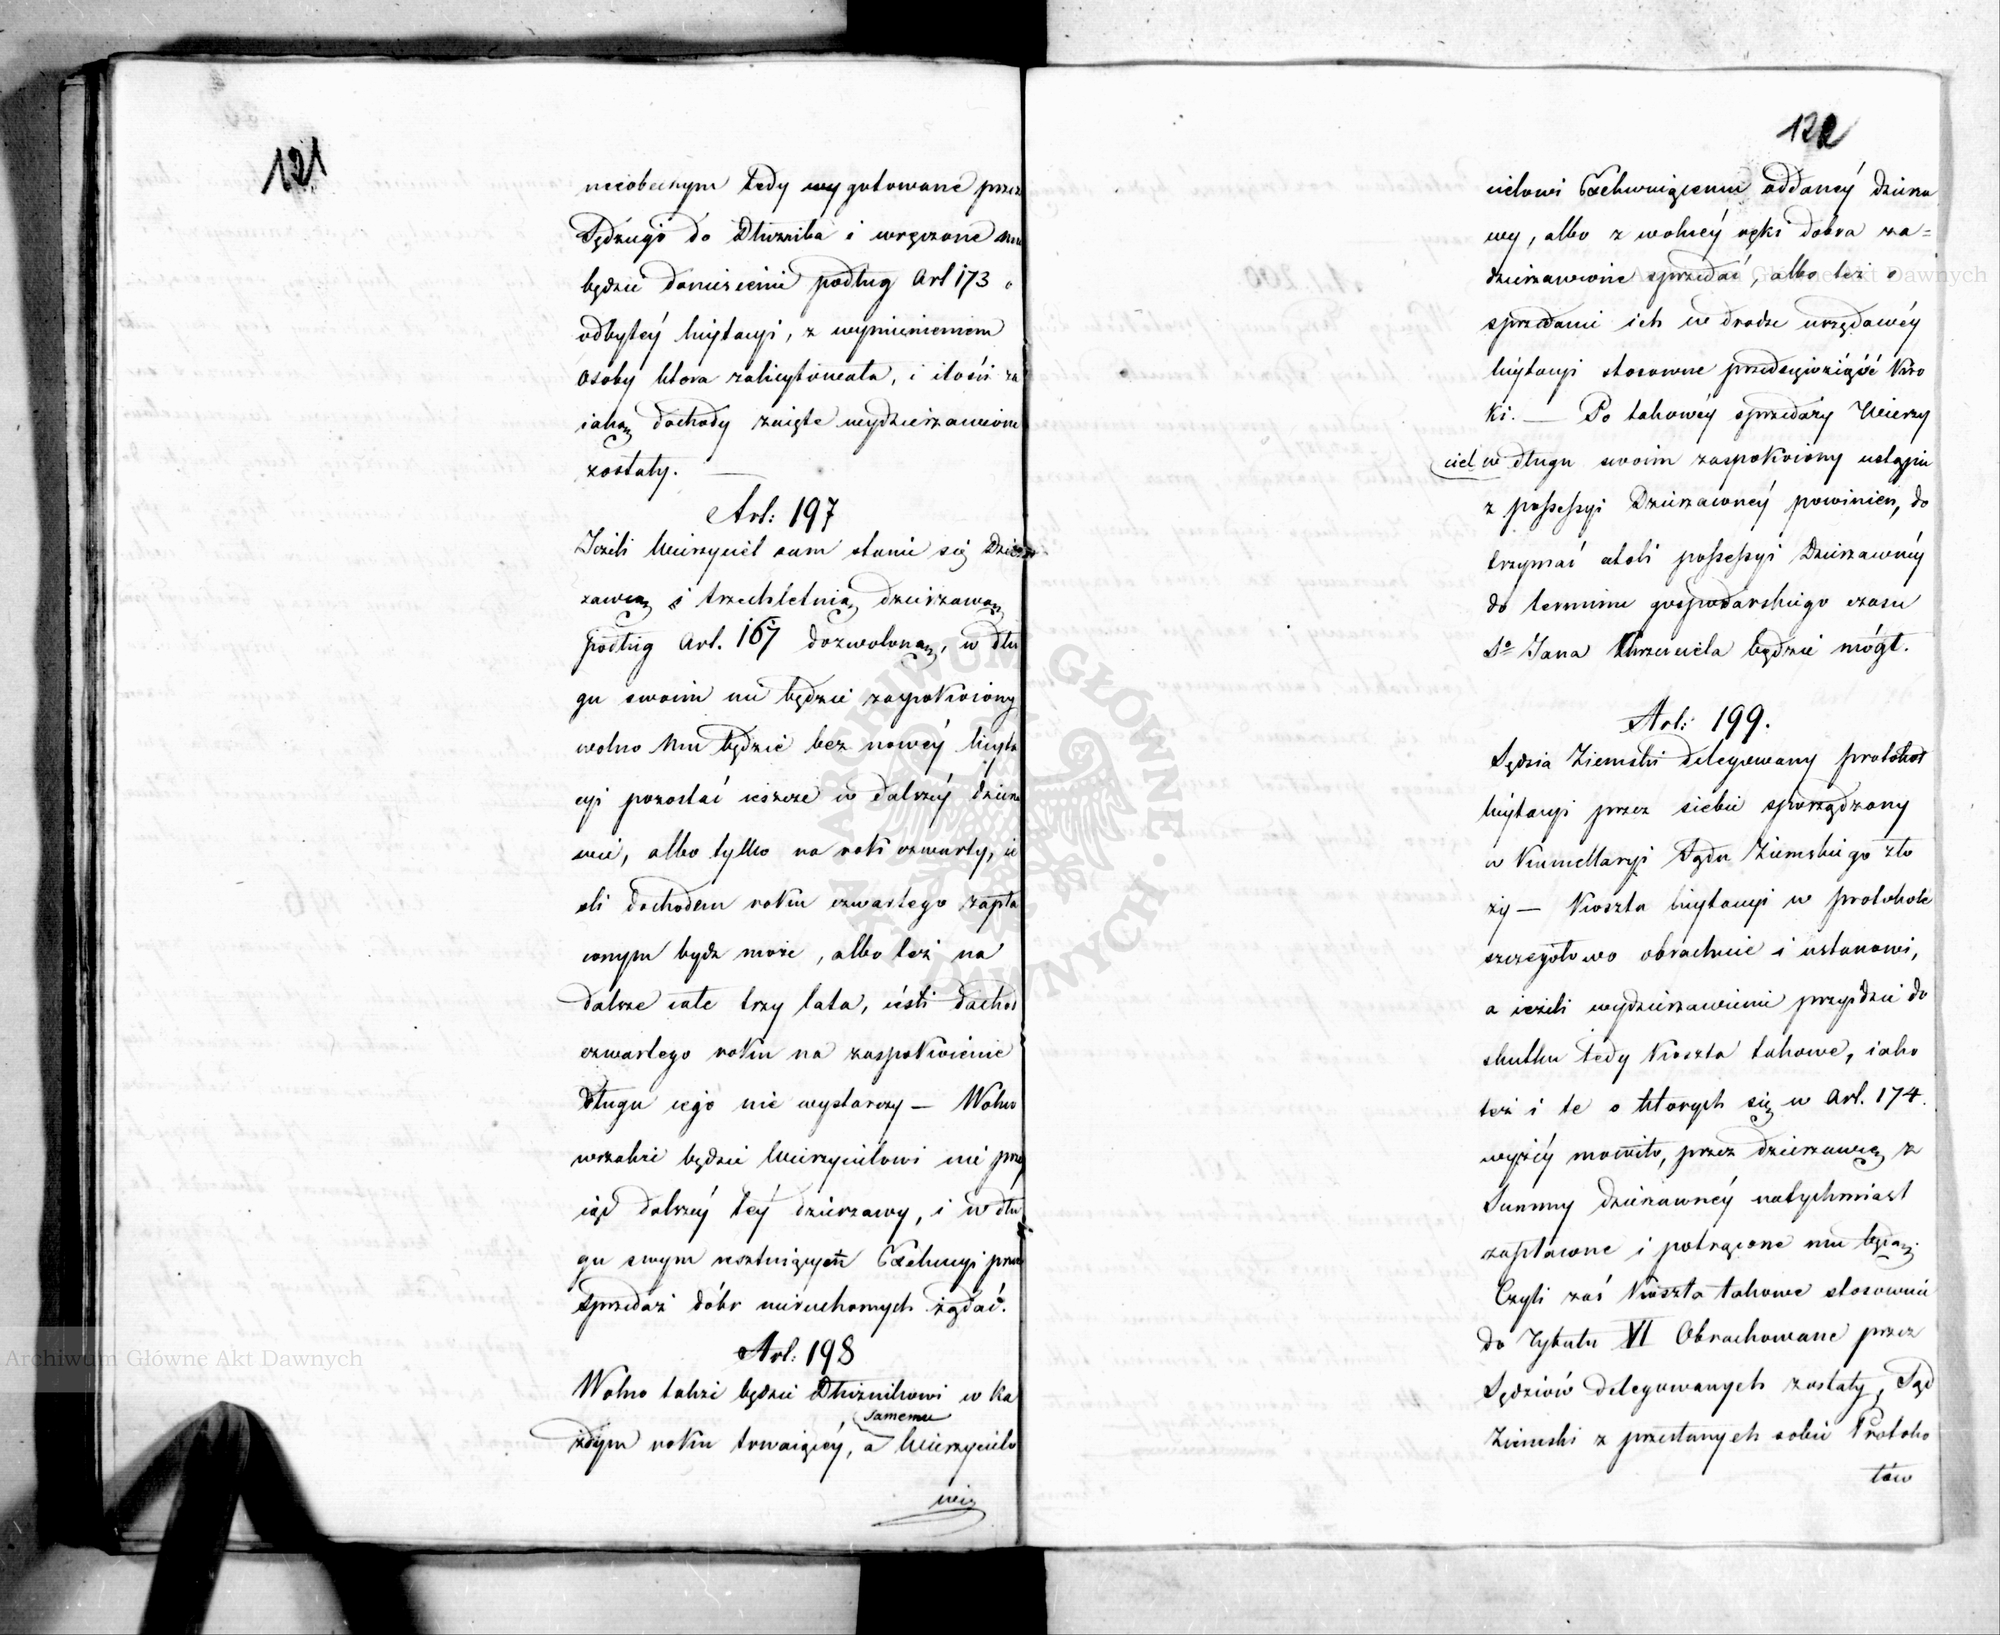 121
nieobecnym tedy wygotowane przez
Sędziego do Dłużnika i wręczone mu
będzie doniesienie podług Art 173 o
odbytéy licytacyi, z wymienieniem
osoby która zalicytowała, i ilości za
iaką dochody zaięte wydzierzawione
zostały. —
Art: 197
Jeżeli Wierzyciel sam stanie się Dzier
zawcą i trzechletnią dzierzawą
podług Art. 167 dozwoloną, w dłu
gu swoim nie będzie zaspokoiony
wolno mu będzie bez nowéy licyta
cyi pozostać ieszcze w dalszéy dzierza
wie, albo tylko na rok czwarty, ie
śli dochodem roku czwartego zapła
conym bydz może, albo też na
dalsze całe trzy lata, ieśli dochod
czwartego roku na zaspokoienie
długu iego nie wystarczy — Wolno
wszakże będzie Wierzycielowi nie przy
iąć dalszéy téy dzierzawy, i w dłu
gu swym resztuiącym Exekucyi przez
sprzedaż dóbr nieruchomych żądać.
Art: 198
Wolno także będzie Dłużnikowi w ka
żdym roku trwaiącéy, a samemu Wierzycielo
wi
122
cielowi Exekwuiącemu oddanéy dzierza
wy, albo z wolnéy ręki dobra za=
dzierzawione sprzedać, albo też o
sprzedanie ich w drodze urzędowéy
licytacyi stosowne przedsięwziąść kro
ki. — Po takowéy sprzedaży Wierzy
ciel w długu swoim zaspokoiony ustąpić
z possessyi Dzierzawnéy powinien, do
trzymać atoli possessyi Dzierzawnéy
do terminu gospodarskiego czasu
So Jana Chrzciciela będzie mógł.
Art: 199.
Sędzia Ziemski delegowany protokół
licytacyi przez siebie sporządzony
w Kancellaryi Sądu Ziemskiego zło
ży — Koszta licytacyi w protokole
szczegółowo obrachuie i ustanowi,
a ieżeli wydzierzawienie przyidzie do
skutku tedy koszta takowe, iako
też i te o których się w Art. 174.
wyżéy mowiło, przez dzierzawcę z
Summy dzierzawnéy natychmiast
zapłacone i potrącone mu będą.
Czyli zaś koszta takowe stosownie
do Tytułu VI Obrachowane przez
Sędziów delegowanych zostały, Sąd
Ziemski z przesłanych sobie Protoko
łów
Archiwum Główne Akt Dawnych
Archiwum Główne Akt Dawnych
ARCHIWUM GŁÓWNE AKT DAWNYCH